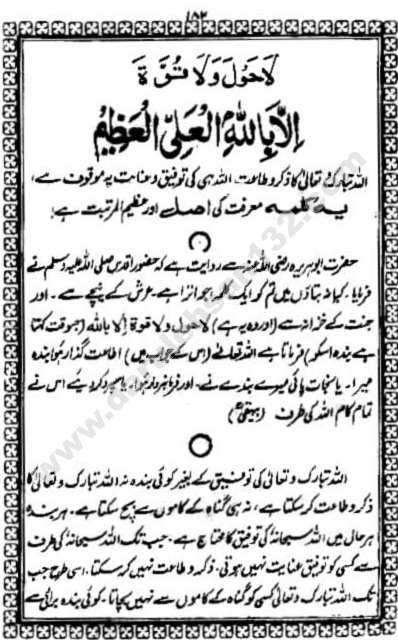 ۱۵۲
لَا حَوْلَ وَ لَا قُوَّةَ
اِلَّا بِاللّٰهِ الْعَلِیِّ الْعَظِیْمِ
اللہ تبارک و تعالیٰ کا ذکر و طاعت، اللہ ہی کی توفیق و عنایت پہ موقوف ہے،
یہ کلمہ معرفت کی اصل اور عظیم المرتبت ہے!
حضرت ابوہریرہ رضی اللہ عنہ سے روایت ہے کہ حضور اقدس صلی اللہ علیہ وسلم نے
فرمایا۔ کیا نہ بتاؤں میں تم کو ایک کلمہ جو اترا ہے۔ عرش کے نیچے سے۔ اور
جنت کے خزانہ سے (اور وہ یہ ہے) لا حول ولا قوة الا باللہ (جس وقت کہتا
ہے بندہ اسکو) فرماتا ہے اللہ تعالیٰ (اس کے جواب میں) اطاعت گذار ہوا بندہ
میرا۔ یا نجات پائی میرے بندے نے۔ اور فرمانبردار ہوا۔ یا سپرد کر دیے اس نے
تمام کام اللہ کی طرف (بیہقی)
اللہ تبارک و تعالیٰ کی توفیق کے بغیر کوئی بندہ نہ اللہ تبارک و تعالیٰ کا
ذکر و طاعت کر سکتا ہے، نہ ہی گناہ کے کاموں سے بچ سکتا ہے۔ ہر بندہ
ہر حال میں اللہ سبحانہٗ کی توفیق کا محتاج ہے۔ جب تک اللہ سبحانہٗ کی طرف
سے کسی کو توفیق عنایت نہیں ہوتی۔ ذکر و طاعت نہیں کر سکتا، اسی طرح جب
تک اللہ تبارک و تعالیٰ کسی کو گناہ کے کاموں سے نہیں بچاتا۔ کوئی بندہ برائی سے